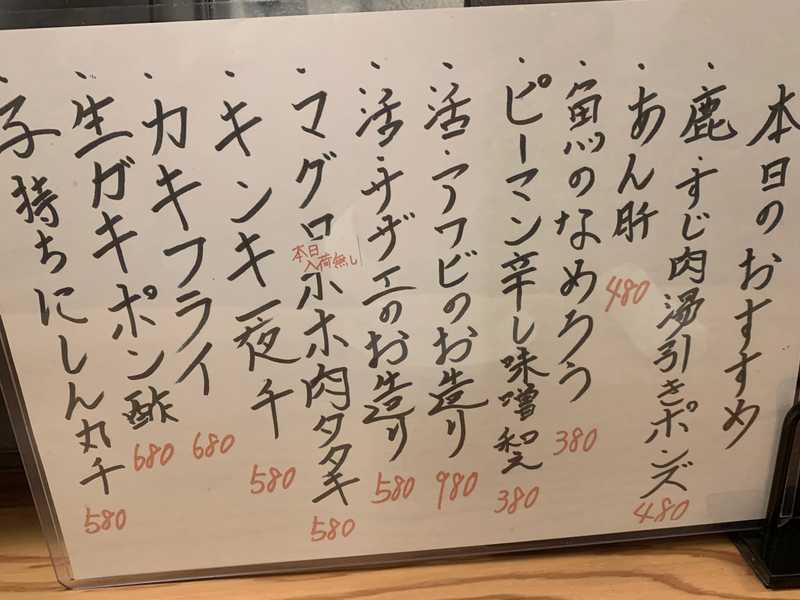 本日のおすすめ
・鹿・すじ肉湯引きポンズ 480
・あん肝 480
・魚のなめろう 380
・ピーマン辛し味噌和え 380
・活・アワビのお造り 980
・活・サザエのお造り 580
・マグロホホ肉タタキ 580
本日
入荷無し
・キンキ一夜干 580
・カキフライ 680
・生ガキポン酢 680
・子持ちにしん丸干 580